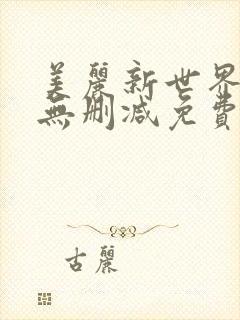 美麗新世界
無刪減免費
古麗